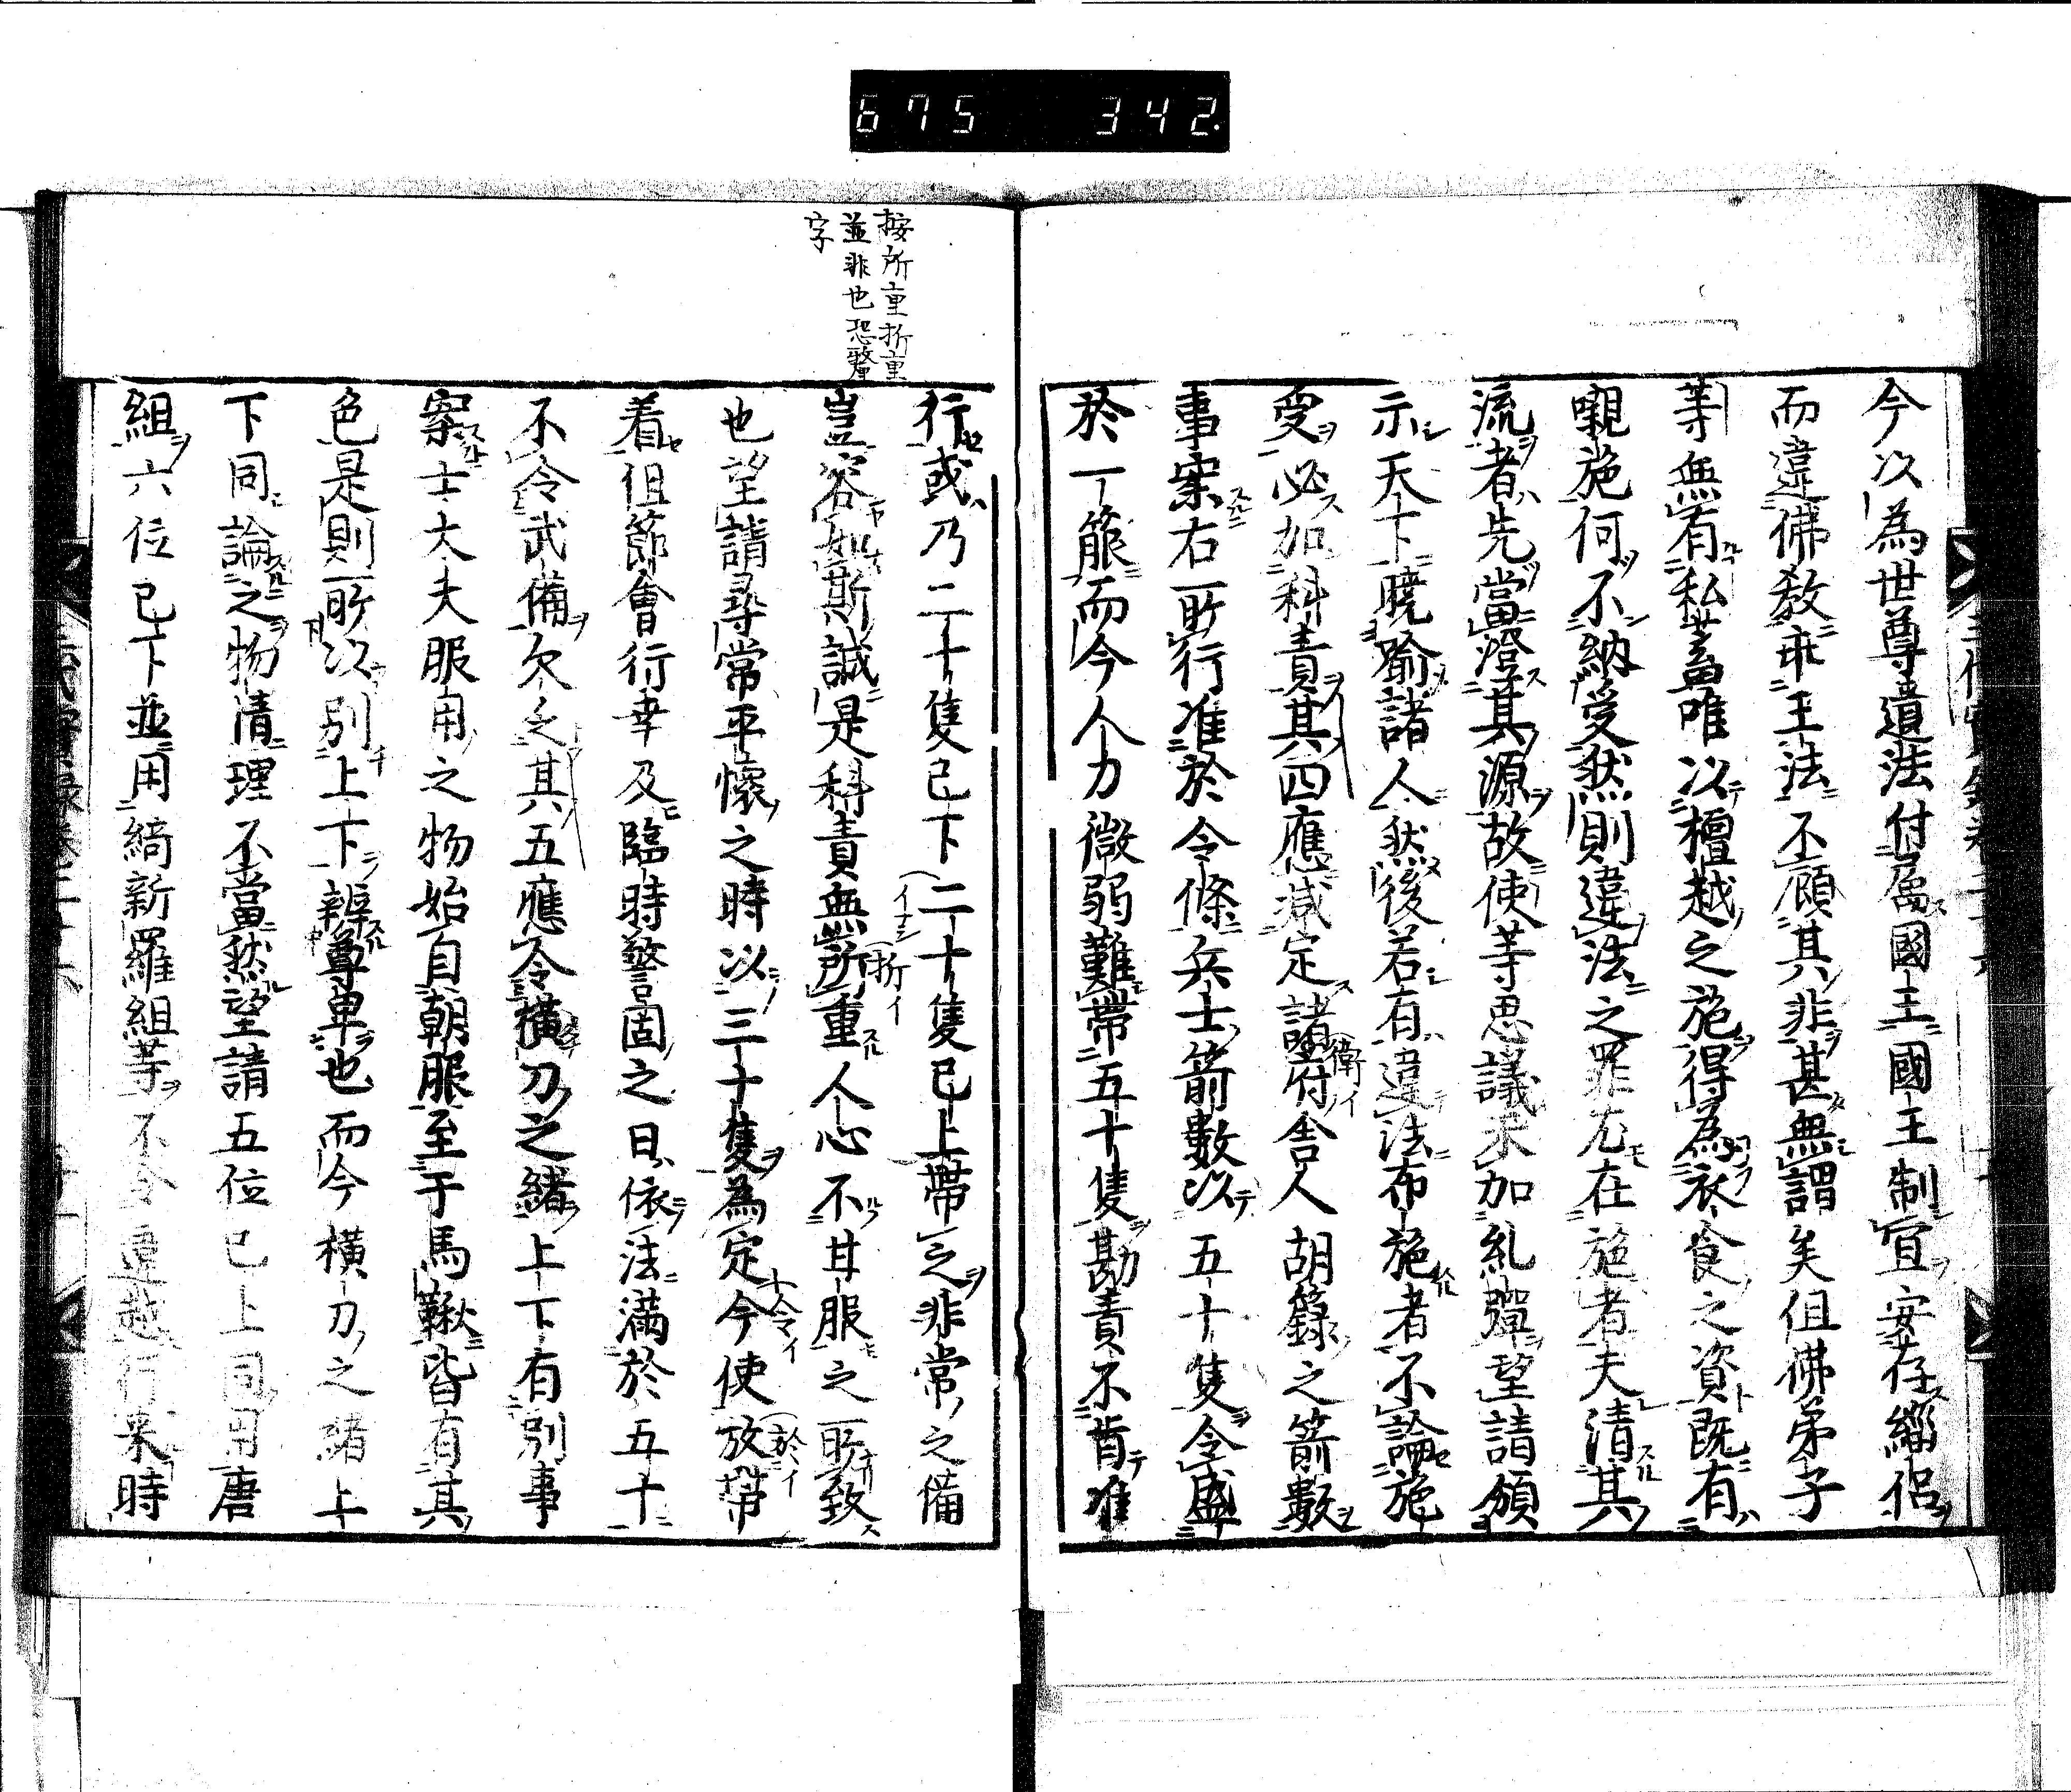 675 342
今以為世尊遺法付属國王國王制宜安存緇侶
而違佛教乖王法不顧其非甚無謂矣但佛弟子
等無有私畜唯以檀越之施得為衣食之資既有
嚫施何不納受然則違法之罪尤在施者夫清其
流者先當澄其源故使等思議未加糺彈望請頒
示天下曉喻諸人然後若有違法布施者不論施
受必加科責其四應減定諸府舎人胡籙之箭數
事案右所行准於令條兵士箭數以五十隻令盛
於一箙而今人力微弱難帶五十隻勘責不肯准
行或乃二十隻已下二十隻已上帶之非常之備
豈容如斯誠是科責無所重人心不甘服之所致
也望請尋常平懷之時以三十隻為定今使放帶
着但節會行幸及臨時警固之日依法満於五十
不令武備欠之其五應令横刀之緒上下有別事
案士大夫服用之物始自朝服至于馬鞦皆有其
色是則所以別上下辨尊卑也而今横刀之緒上
下同論之物情理不當然望請五位已上同用唐
組六位已下並用綺新羅組等不令違越行來時
按所重折重
並非也恐聱
字